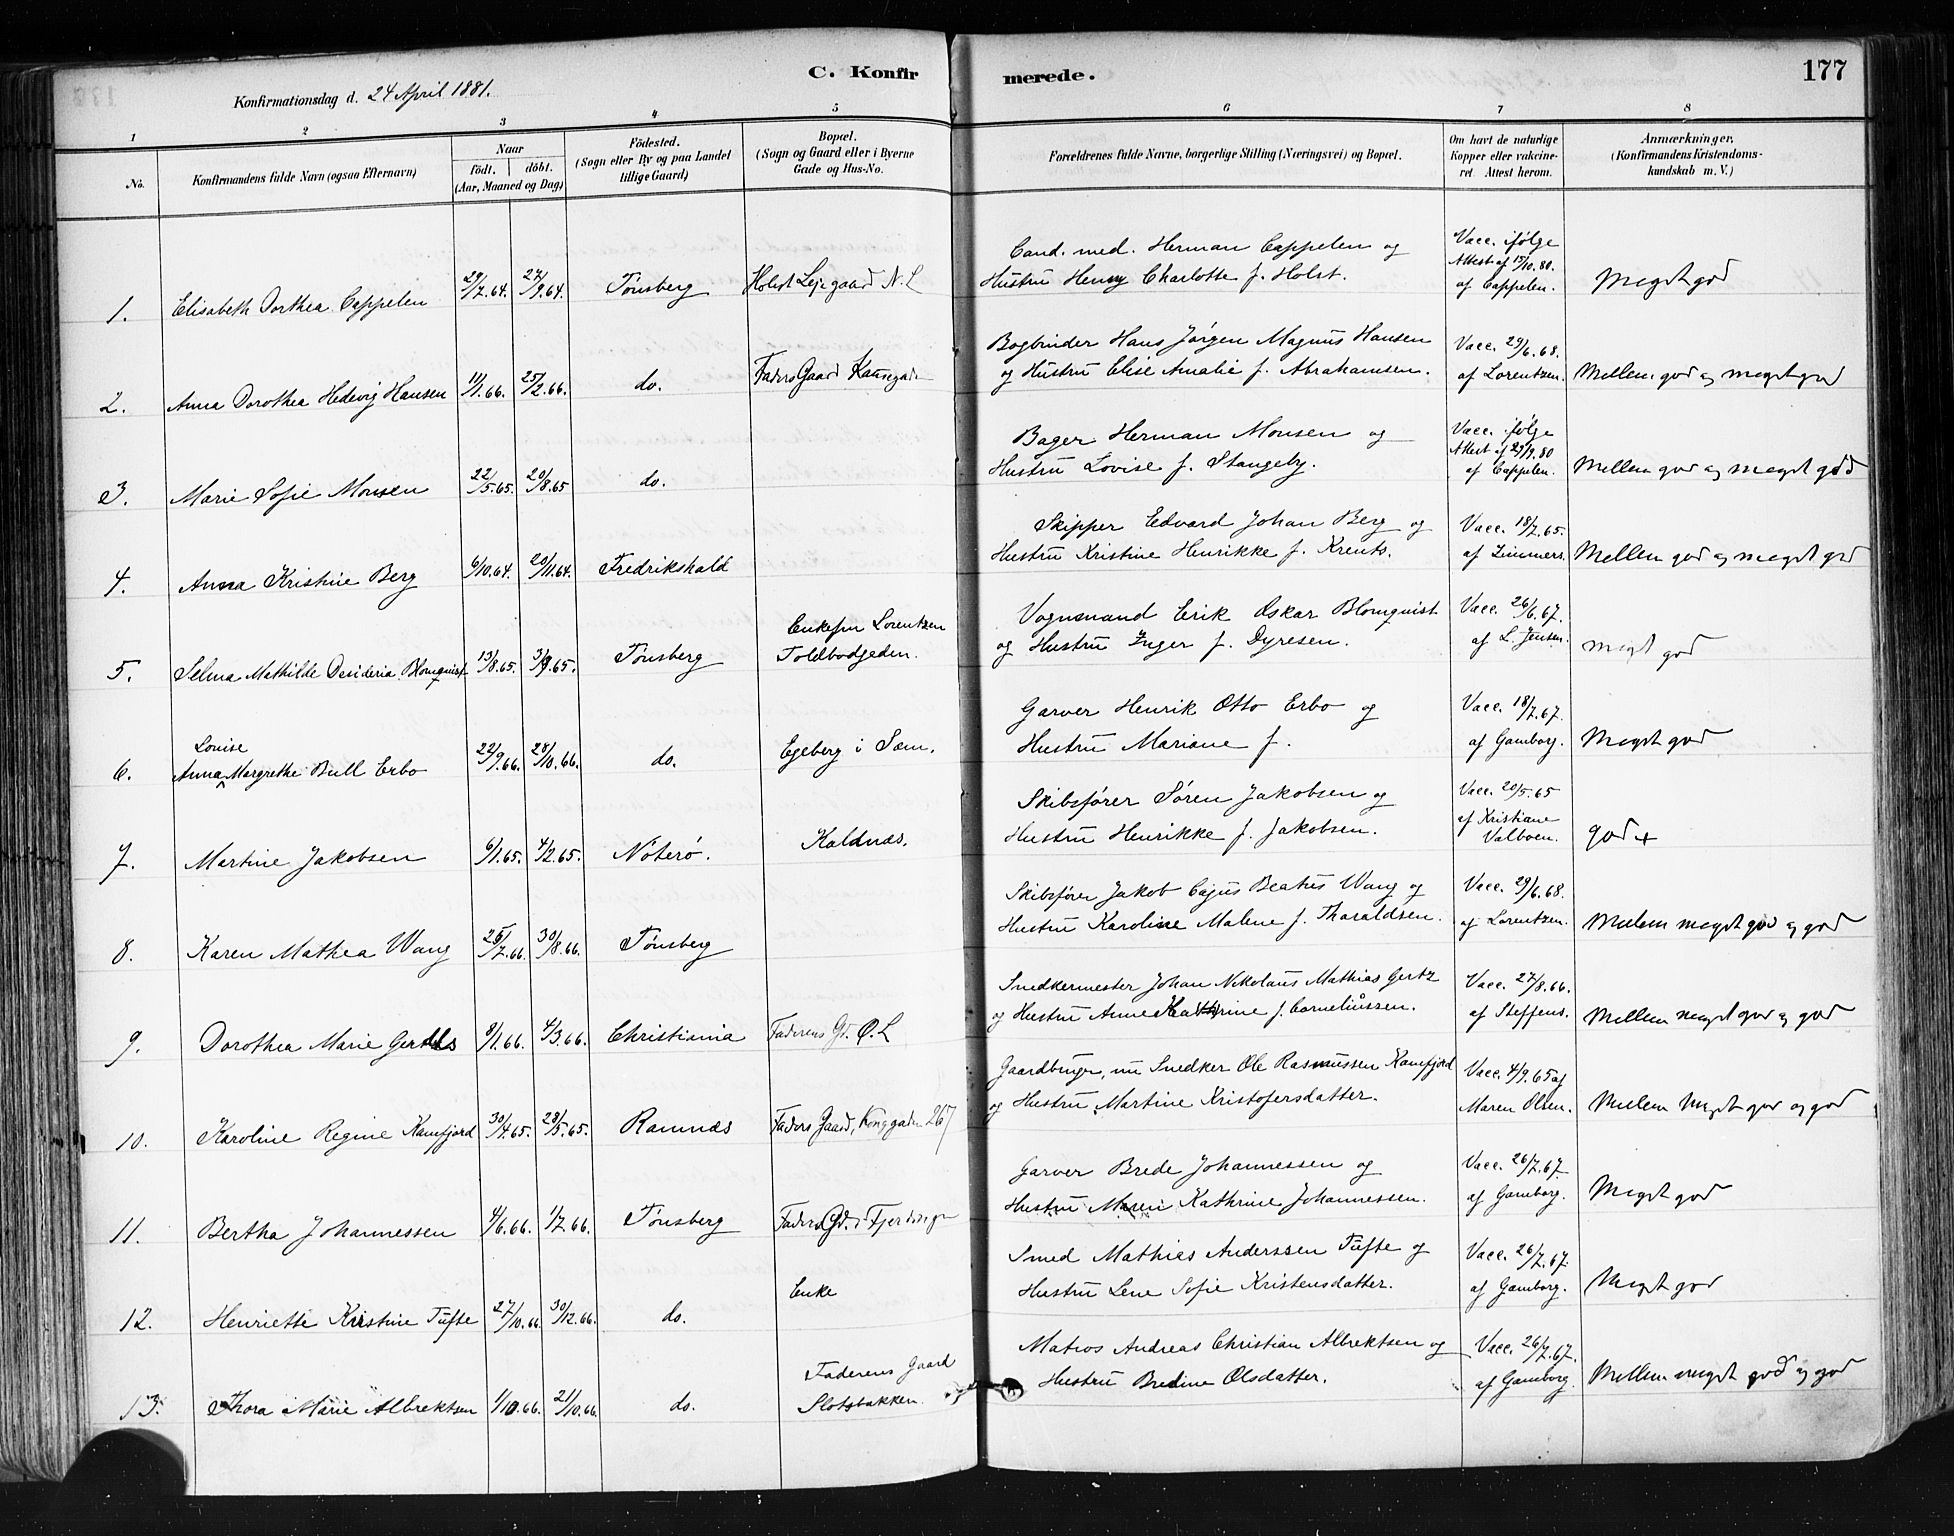 C. Konfirmerede. 177
Konfirmationsdag d. 24 April 1881.
1 2 3 4 5 6 7 8
No. Konfirmandens fulde Navn (ogsaa Efternavn) Naar födt. döbt. (Aar, Maaned og Dag) Födested. (Sogn eller By og paa Landet tillige Gaard) Bopæl. (Sogn og Gaard eller i Byerne Gade og Hus-No. Forældrenes fulde Navne, borgerlige Stilling (Næringsvei) og Bopæl. Om havt de naturlige Kopper eller vakcineret. Attest herom. Anmærkninger. (Konfirmandens Kristendomskundskab m. V.)
1. Elisabeth Dorthea Cappelen 29/7.64. 27/9.64. Tønsberg Holst Lejegaard N. L Cand. med. Herman Cappelen og Hustru Henny Charlotte f. Holst. Vacc. ifølge Attest af 15/10.80. af Cappelen. Meget god
2. Anna Dorothea Hedevig Hansen 11/1.66. 25/2.66. do. Faders Gaard Bogbinder Hans Jørgen Magnus Hansen og Hustru Elise Amalie f. Abrahamsen. Vacc. 29/6.68. af Lorentzen. Mellem god og meget god
3. Marie Sofie Monsen 22/5.65. 20/8.65 do. Bager Herman Monsen og Hustru Lovise f. Stangeby. Vacc. ifølge Attest af 29/9.80 af Cappelen. Mellem god og meget god
4. Anna Kristine Berg 6/10.64. 20/11.64. Fredrikshald Skipper Edvard Johan Berg og Hustru Kristine Henrikke f. Krents. Vacc. 18/7.65. af Zimmers. Mellem god og meget god
5. Selma Mathilde Desideria Blomquist 13/8.65. 3/9.65. Tønsberg Enkefru Lorentzen Toldbodgaden. Vognmand Erik Oskar Blomquist og Hustru Inger f. Dyresen. Vacc. 26/6.67. af L. Jensen. meget god
6. Anna Louise Margrethe Bull Erbo 22/9.66. 28/10.66. do. Egeberg i Sem. Garver Henrik Otto Erbo og Hustru Mariane f. Vacc. 18/7.67. af Gamborg. Meget god
7. Martine Jakobsen 6/1.65. 4/2.65. Nøterø. Kaldnæs. Skibsfører Søren Jakobsen og Hustru Henrikke f. Jakobsen. Vacc. 20/5.65 af Kristiane Valboen. god +
8. Karen Mathea Wang 25/7.66. 30/8.66. Tønsberg Skibsfører Jakob Cajus Beatus Wang og Hustru Karoline Malene f. Tharaldsen. Vacc. 29/6.68. af Lorentzen. Mellem meget god og god
9. Dorothea Marie 9/1.66. 4/3.66. Christiania Faderens Gd. Ø. L Snedkermester Johan Nikolaus Mathias Gertz og Hustru Anne Kathrine f. Corneliussen. Vacc. 27/8.66. af Steffens. Mellem meget god og god
10. Karoline Regine Kamfjord 30/4.65. 28/5.65. Ramnæs Faders Gaard, Konggaden 267 Gaardbruger, nu Snedker Ole Rasmussen Kamfjord og Hustru Martine Kristofersdatter. Vacc. 4/9.65 af Maren Olsen. Mellem Meget god og god
11. Bertha Johannessen 4/6.66. 1/7.66. Tønsberg Faders Gd. i Garver Brede Johannessen og Hustru Maren Kathrine Johannessen. Vacc. 26/7.67. af Gamborg. Meget god
12. Henriette Kristine Tufte 27/10.66. 30/12.66. do. Enke Smed Mathias Anderssen Tufte og Hustru Lene Sofie Kristensdatter. Vacc. 26/7.67. af Gamborg. Meget god
13. Thora Marie Albrektsen 1/10.66. 21/10.66. do. Faderens Gaard Slotsbakken. Matros Andreas Christian Albrektsen og Hustru Bredine Olsdatter. Vacc. 26/7.67. af Gamborg. Mellem meget god og god